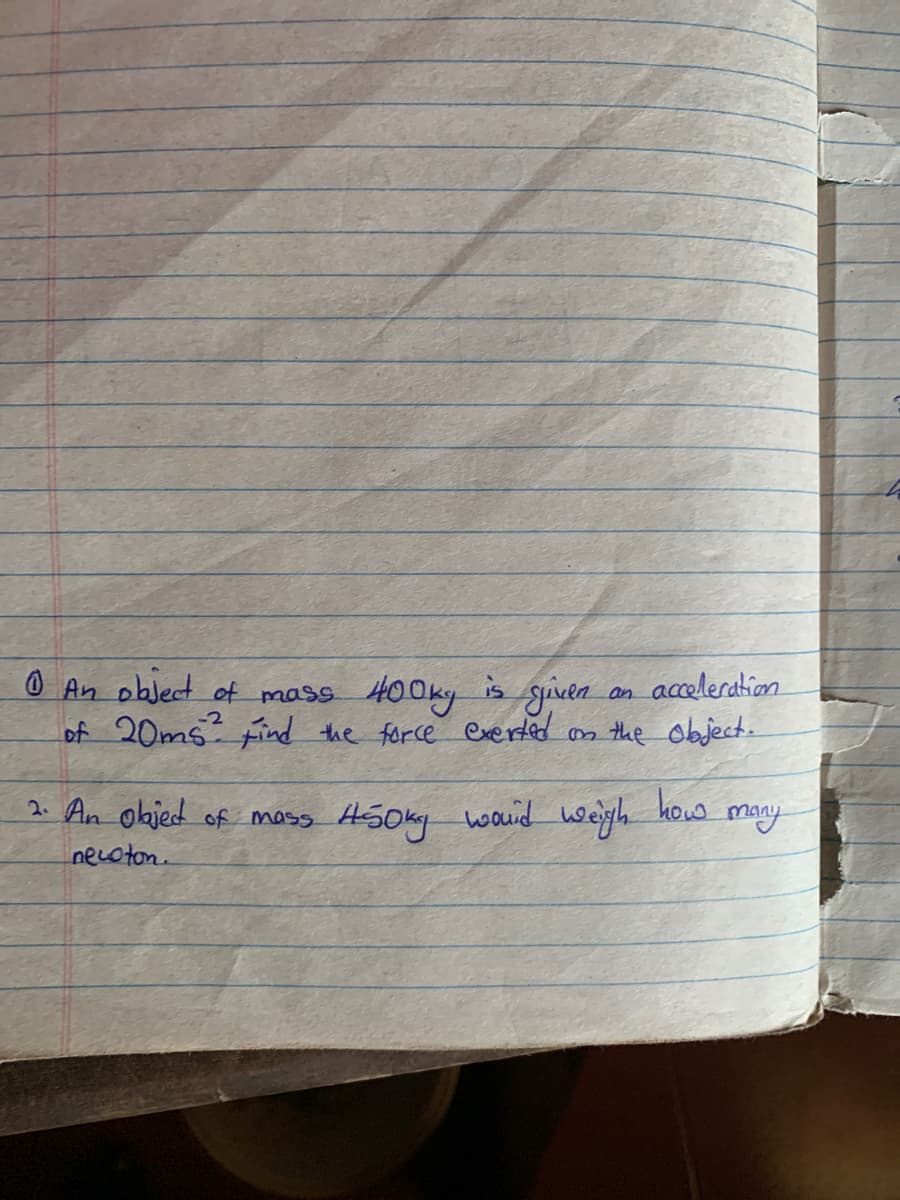 ① An object of mass 400kg is given an acceleration
of 20ms⁻². Find the force exerted on the object.
2. An object of mass 450kg would weigh how many
newton.